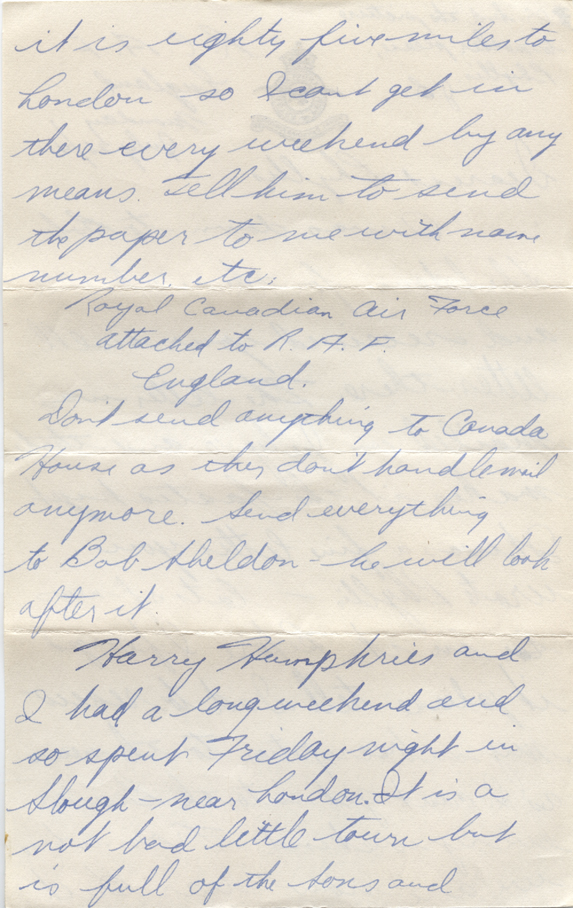 it is eighty five miles to
London so I cant get in
there every weekend by any
means. Tell him to send
the paper to me with name
number, etc;
Royal Canadian Air Force
attached to R. A. F.
England.
Don't send anything to Canada
House as they don't handle mail
anymore. Send everything
to Bob Sheldon - he will look
after it.
Harry Humphries and
I had a long weekend and
so spent Friday night in
Slough - near London. It is a
not bad little town but
is full of the sons and